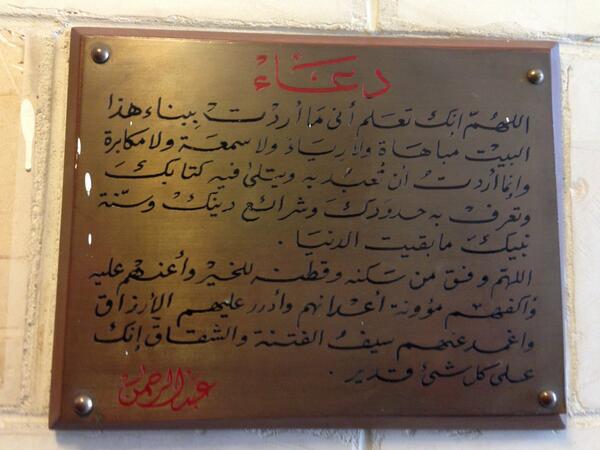 دعَاء
اللهُمّ إنكَ تعَلم أنى مَا أردْتُ بِبنَاء هذا
البيْت مباهَاة ولا رِياءً ولا سمعَة ولا مكابرة
وإنما أردتُ أن تُعبُد به ويتلىٰ فيه كتابكَ
وتعرف به حدودكَ وشرائع دينكْ وسنّة
نبيكَ مابقيت الدنيا .
اللهم وفق من سكنه وقطنه للخير وأعنهم عليه
وأكفهم مؤونة أعدائهم وأدرر عليهم الأرزاق
واغمد عنهم سيفُ الفتنة والشقاق إنكَ
على كل شئ قدير .
عبد الرحمن